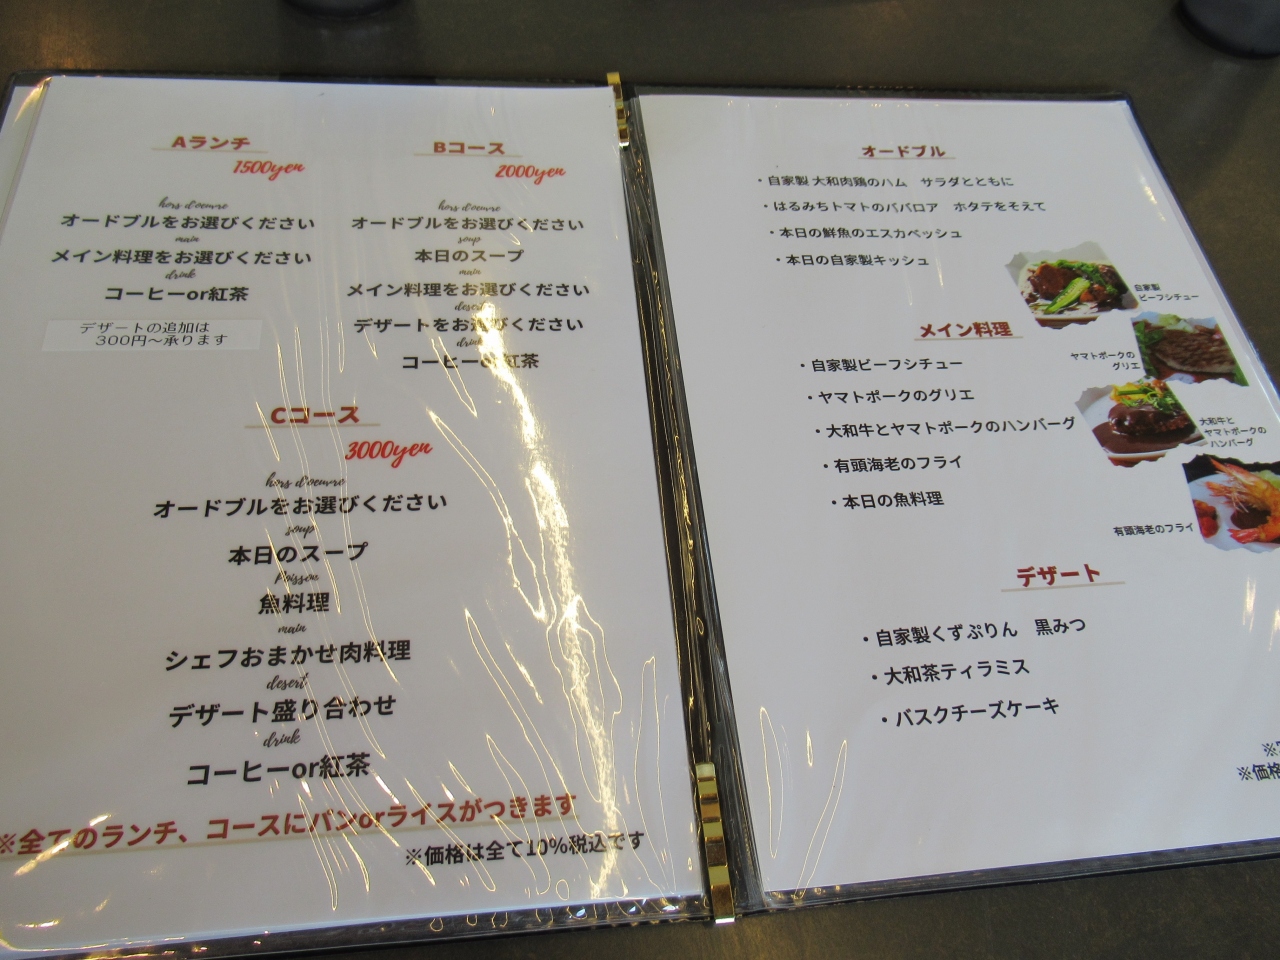 Aランチ
1500yen
hors d'oeuvre
オードブルをお選びください
main
メイン料理をお選びください
drink
コーヒーor紅茶
デザートの追加は
300円～承ります
Bコース
2000yen
hors d'oeuvre
オードブルをお選びください
soup
本日のスープ
main
メイン料理をお選びください
desert
デザートをお選びください
drink
コーヒーor紅茶
Cコース
3000yen
hors d'oeuvre
オードブルをお選びください
soup
本日のスープ
Poisson
魚料理
main
シェフおまかせ肉料理
desert
デザート盛り合わせ
drink
コーヒーor紅茶
※全てのランチ、コースにパンorライスがつきます
※価格は全て10%税込です
オードブル
・自家製 大和肉鶏のハム　サラダとともに
・はるみちトマトのババロア　ホタテをそえて
・本日の鮮魚のエスカベッシュ
・本日の自家製キッシュ
自家製
ビーフシチュー
メイン料理
・自家製ビーフシチュー
・ヤマトポークのグリエ
・大和牛とヤマトポークのハンバーグ
・有頭海老のフライ
・本日の魚料理
ヤマトポークの
グリエ
大和牛と
ヤマトポークの
ハンバーグ
有頭海老のフライ
デザート
・自家製くずぷりん　黒みつ
・大和茶ティラミス
・バスクチーズケーキ
※価格